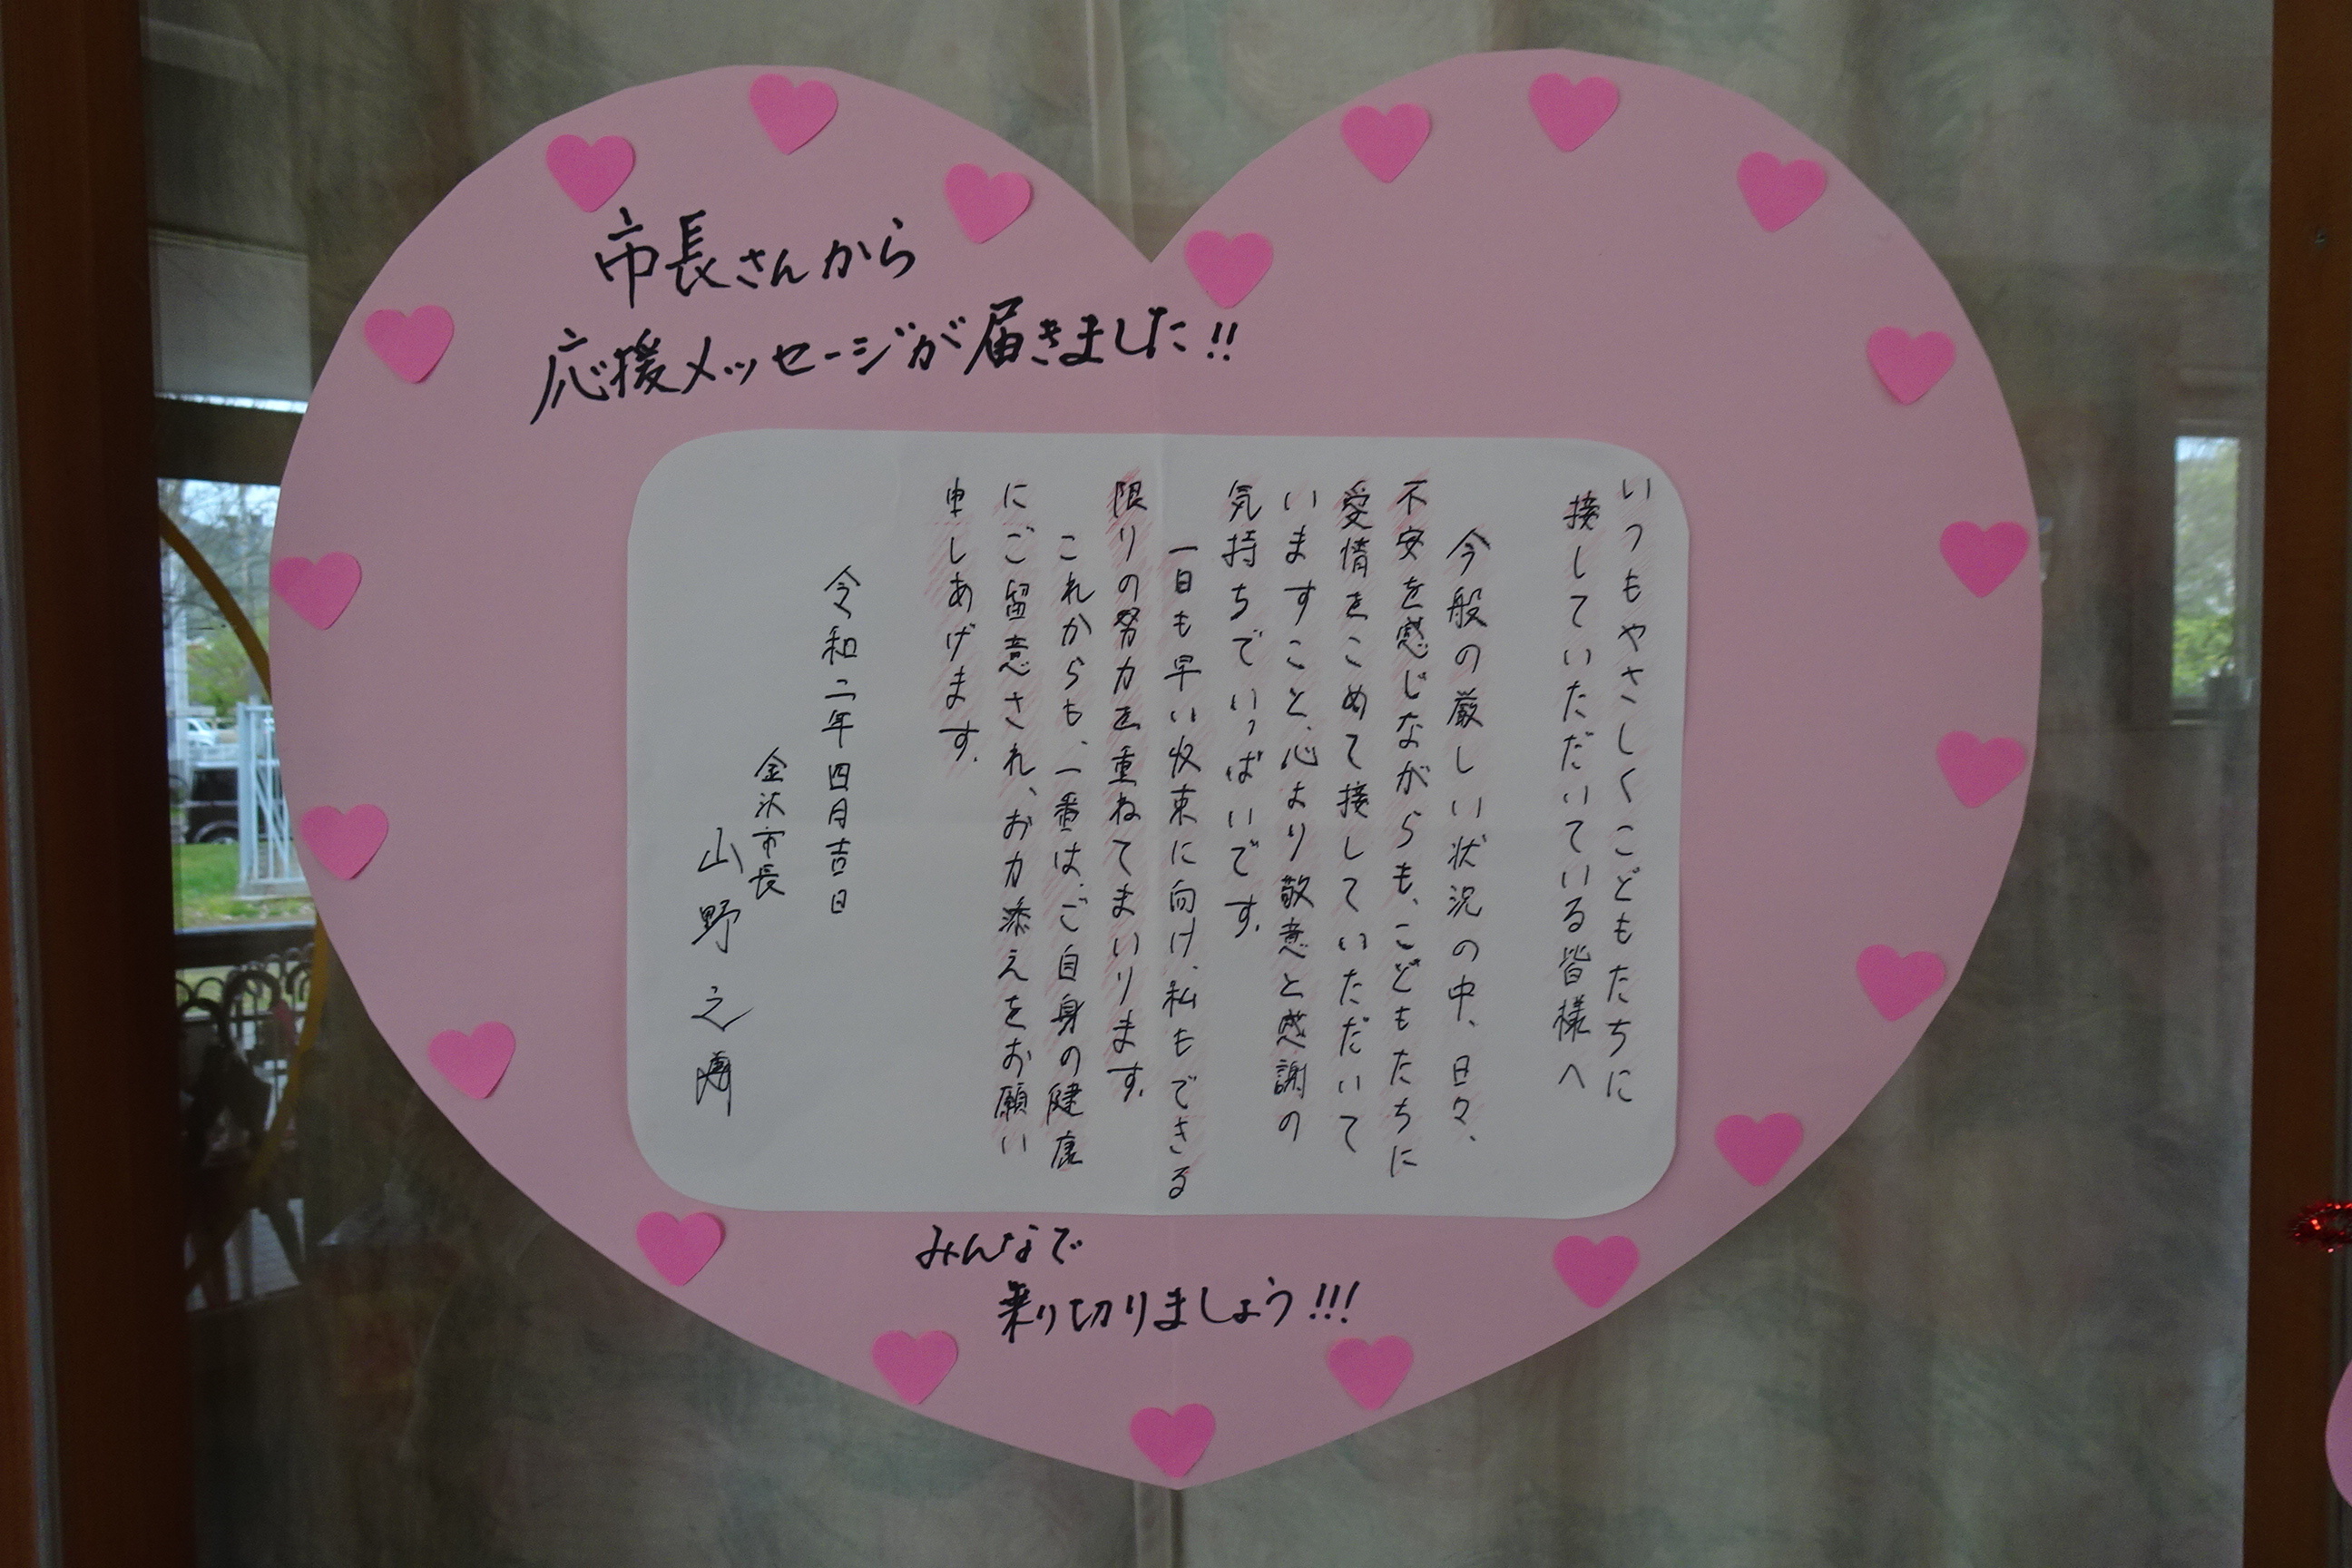 市長さんから
応援メッセージが届きました!!
いつもやさしくこどもたちに
接していただいている皆様へ
今般の厳しい状況の中、日々、
不安を感じながらも、こどもたちに
愛情をこめて接していただいて
いますこと、心より敬意と感謝の
気持ちでいっぱいです。
一日も早い収束に向け、私もできる
限りの努力を重ねてまいります。
これからも、一番は、ご自身の健康
にご留意され、お力添えをお願い
申しあげます。
令和二年四月吉日
金沢市長
山野之義
みんなで
乗り切りましょう!!!